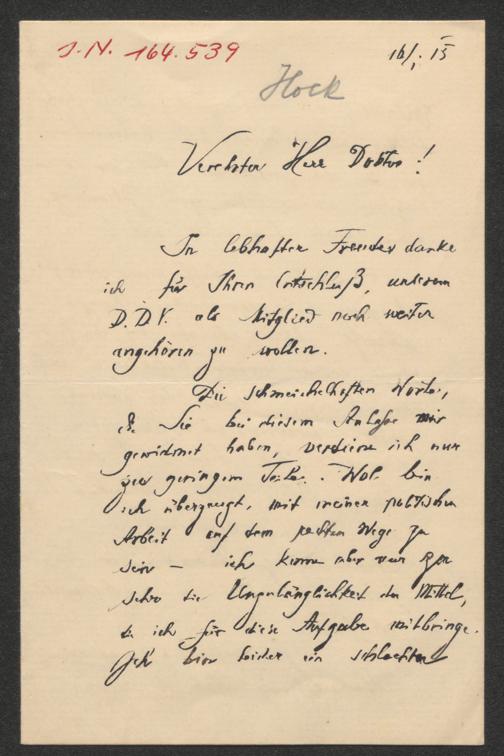 J.N. 164.539
16/I. 15
Hock
Verehrter Herr Doktor!
In lebhafter Freude danke
ich für Ihren Entschluß, unserem
D.D.V. als Mitglied noch weiter
angehören zu wollen.
Die schmeichelhaften Worte,
die Sie bei diesem Anlasse mir
gewidmet haben, verdiene ich nur
zu geringem Teile. Wol bin
ich überzeugt, mit meiner politischen
Arbeit auf dem rechten Wege zu
sein – ich kenne aber nur gar
sehr die Unzulänglichkeit der Mittel,
die ich für diese Aufgabe mitbringe.
Ich bin leider ein schlechter